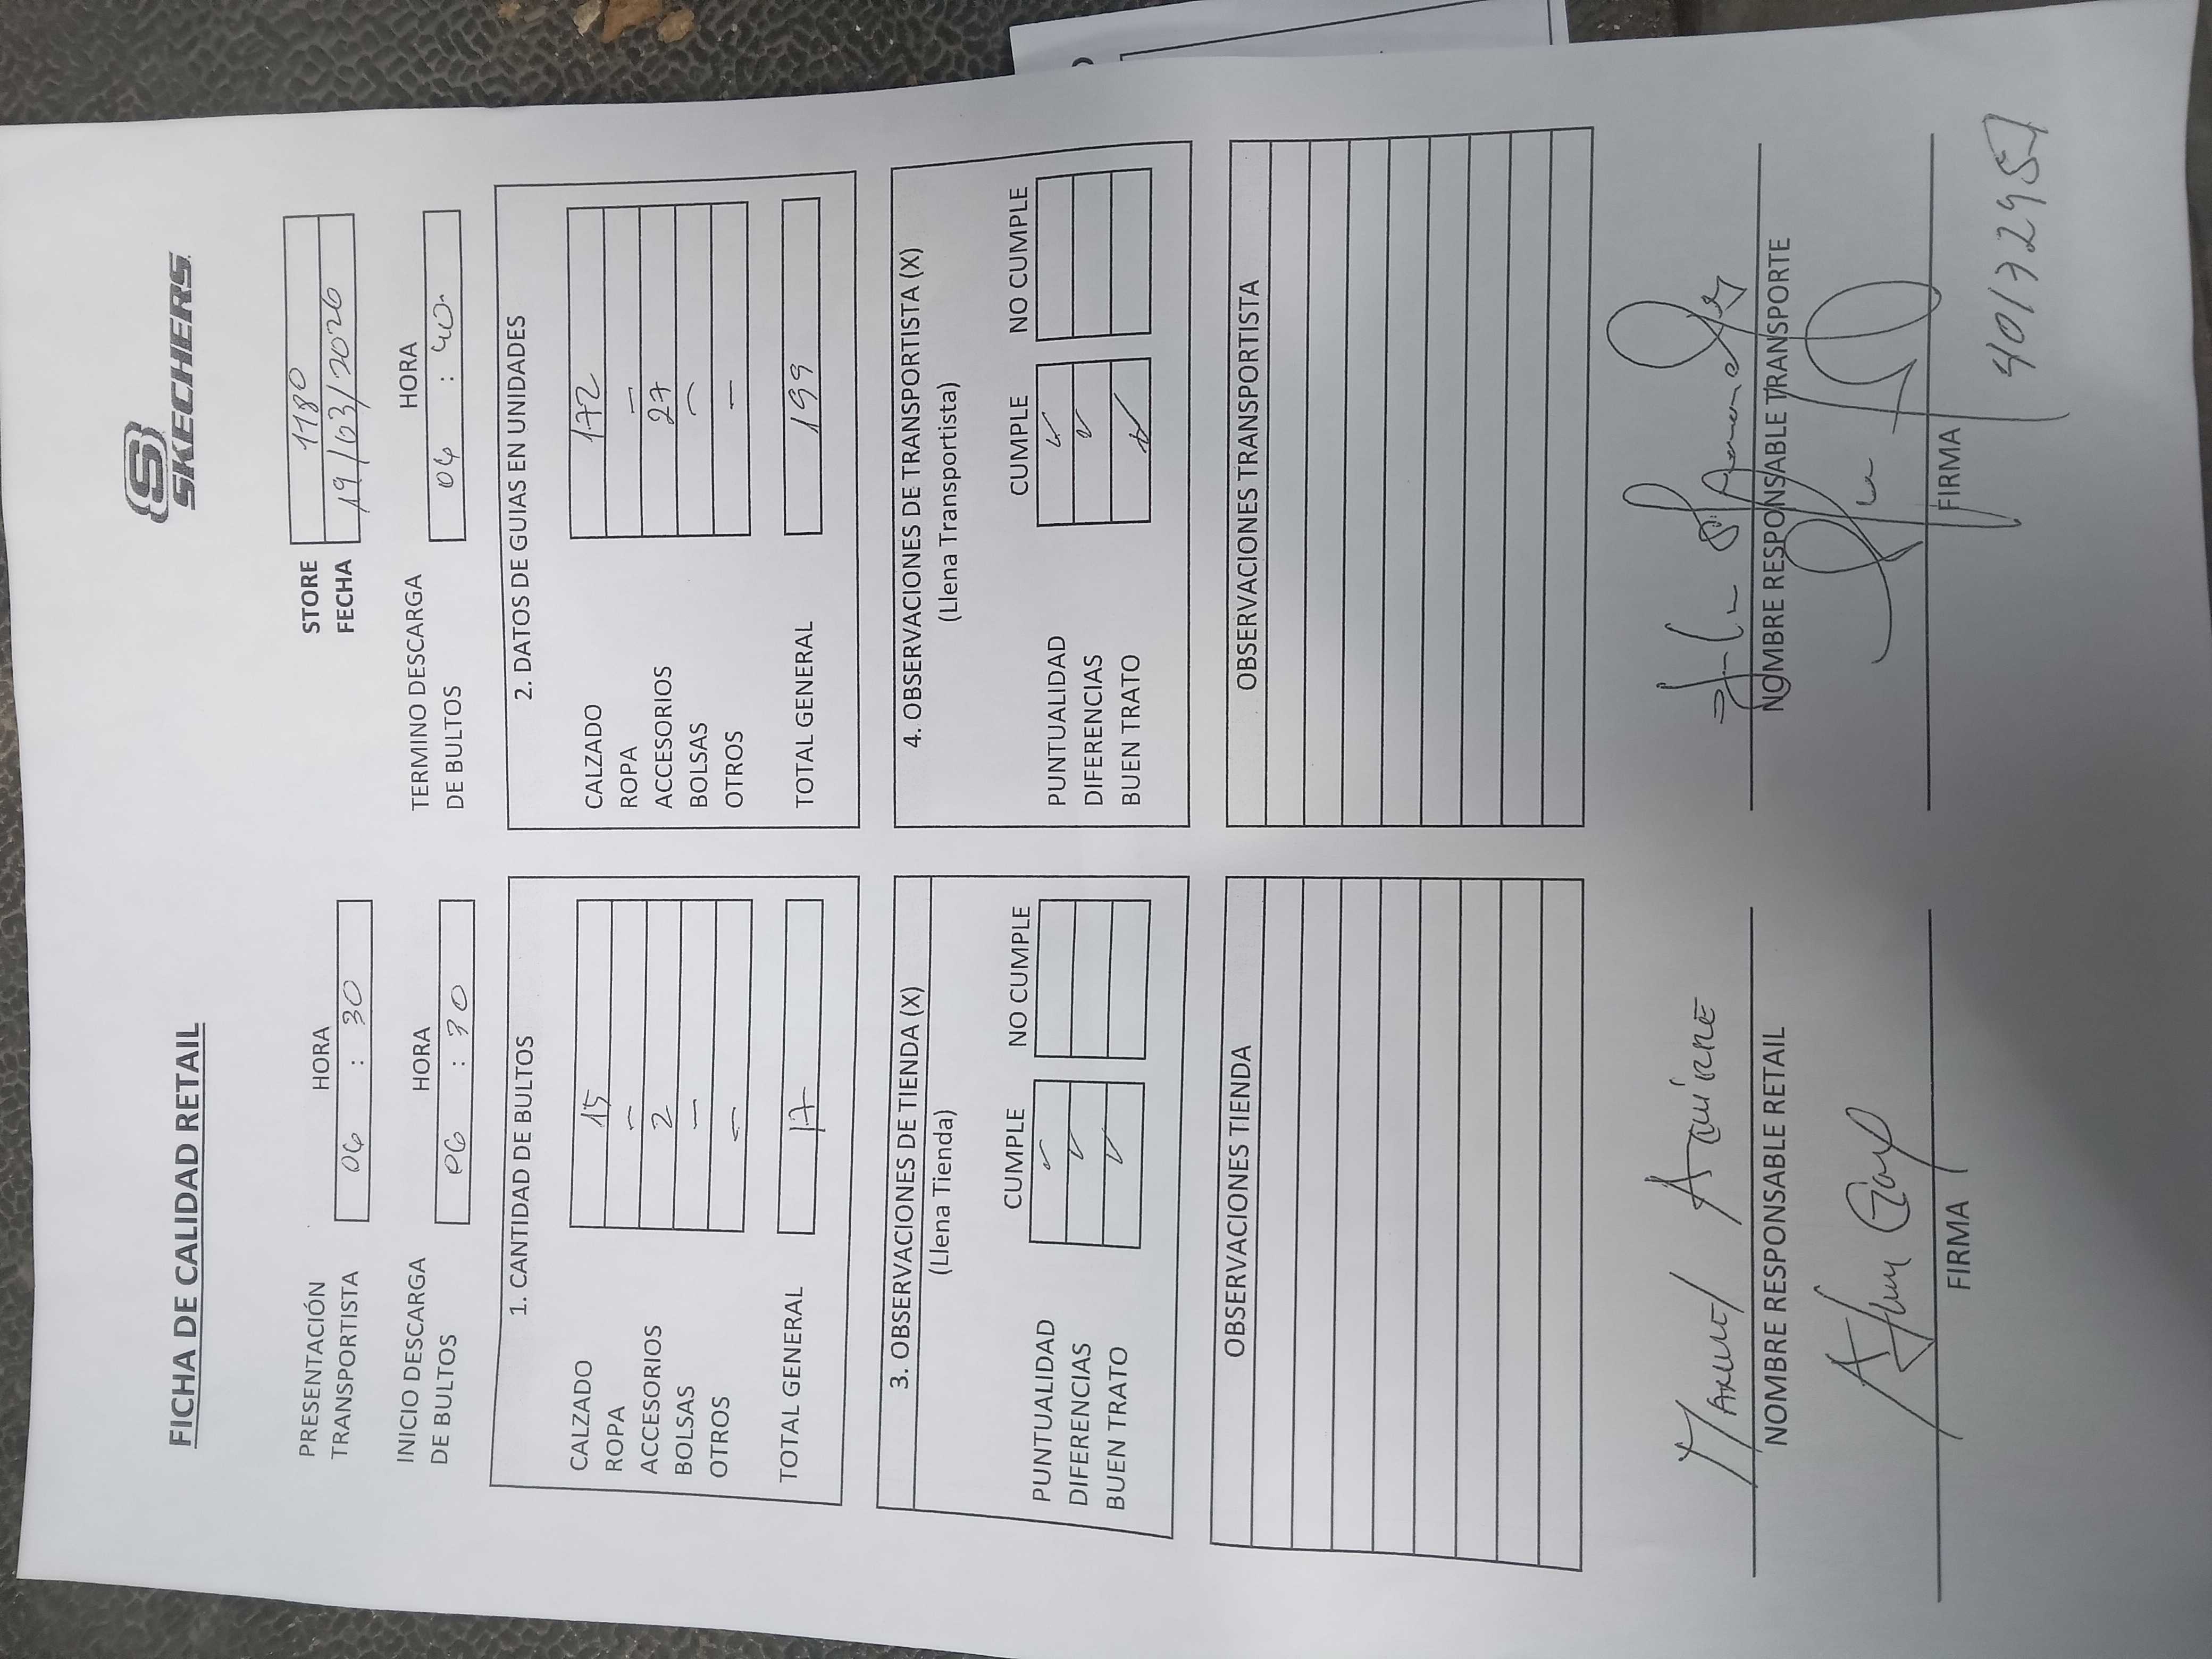 FICHA DE CALIDAD RETAIL
SKECHERS
STORE 1180
FECHA 19/03/2026
PRESENTACIÓN TRANSPORTISTA
HORA
06 : 30
INICIO DESCARGA DE BULTOS
HORA
06 : 30
TERMINO DESCARGA DE BULTOS
HORA
06 : 40
1. CANTIDAD DE BULTOS
CALZADO 15
ROPA –
ACCESORIOS 2
BOLSAS –
OTROS –
TOTAL GENERAL 17
2. DATOS DE GUIAS EN UNIDADES
CALZADO 172
ROPA –
ACCESORIOS 27
BOLSAS –
OTROS –
TOTAL GENERAL 199
3. OBSERVACIONES DE TIENDA (X)
(Llena Tienda)
CUMPLE NO CUMPLE
PUNTUALIDAD ✓
DIFERENCIAS ✓
BUEN TRATO ✓
4. OBSERVACIONES DE TRANSPORTISTA (X)
(Llena Transportista)
CUMPLE NO CUMPLE
PUNTUALIDAD ✓
DIFERENCIAS ✓
BUEN TRATO ✓
OBSERVACIONES TIENDA
OBSERVACIONES TRANSPORTISTA
MANUEL AGUIRRE
NOMBRE RESPONSABLE RETAIL
FIRMA
NOMBRE RESPONSABLE TRANSPORTE
FIRMA
40172957